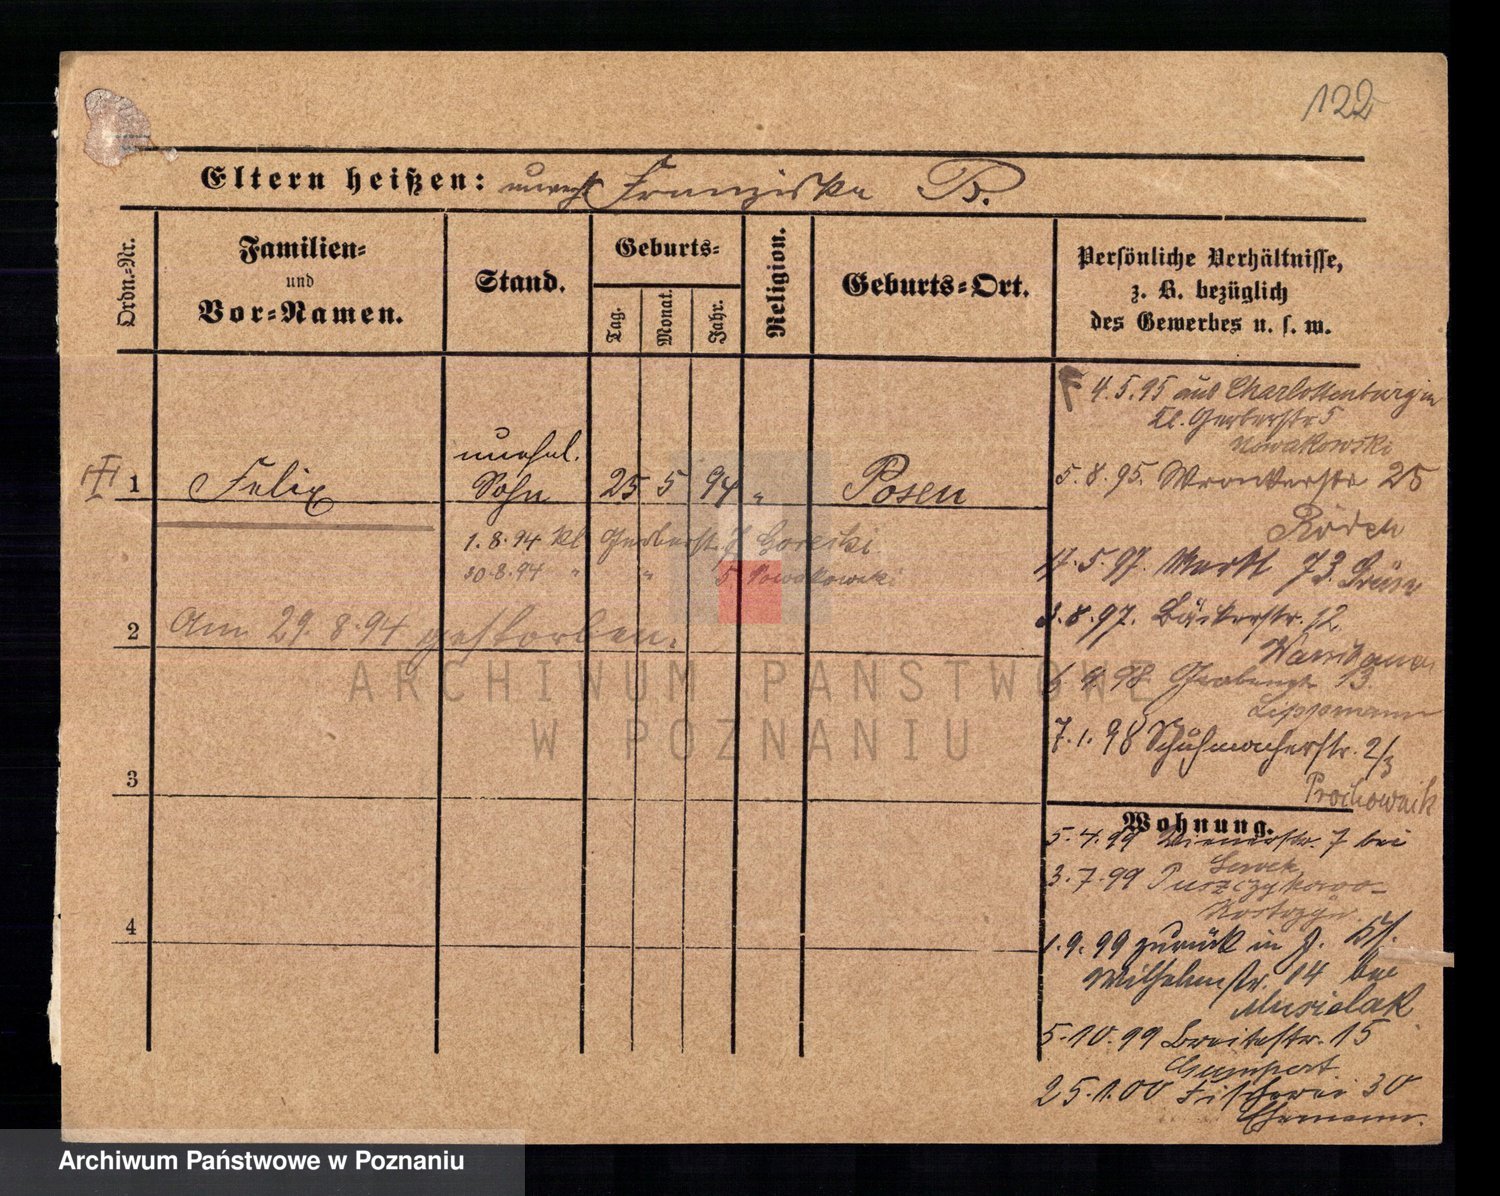 122
Eltern heißen: unverh. Franziska B.
Ordn.=Nr.
Familien=
und
Vor=Namen.
Stand.
Geburts=
Tag.
Monat.
Jahr.
Religion.
Geburts=Ort.
Persönliche Verhältnisse,
z. B. bezüglich
des Gewerbes u. s. w.
1 Felix unehel. Sohn 25 5 94 " Posen
1.8.94 Kl Gerberstr. 7 Gorecki
30.8.94 " " 5 Nowakowski
2 Am 29. 8. 94 gestorben.
3
4
F 4.5.95 aus Charlottenburg in
Kl. Gerberstr 5
Nowakowski
5.8.95. Wronkerstr 25
.5.97. Markt 73.
3.8.97. Bäckerstr. 12
98 13
Lippmann
7.1.98 Schuhmacherstr. 2/3
Prochownik
Wohnung.
5.4.99 Wienerstr. 7 bei
3.7.99 Puszczykowo-
1.9.99 zurück in
Wilhelmstr. 14 bei
Musielak
5.10.99 Breitestr. 15
Gumpert
25.1.00 Fischerei 30
Ehemann.
ARCHIWUM PAŃSTWOWE
W POZNANIU
Archiwum Państwowe w Poznaniu